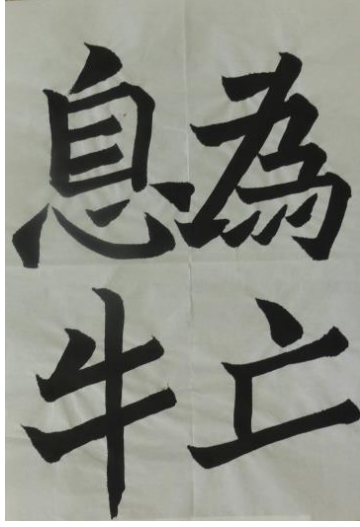 為亡
息牛